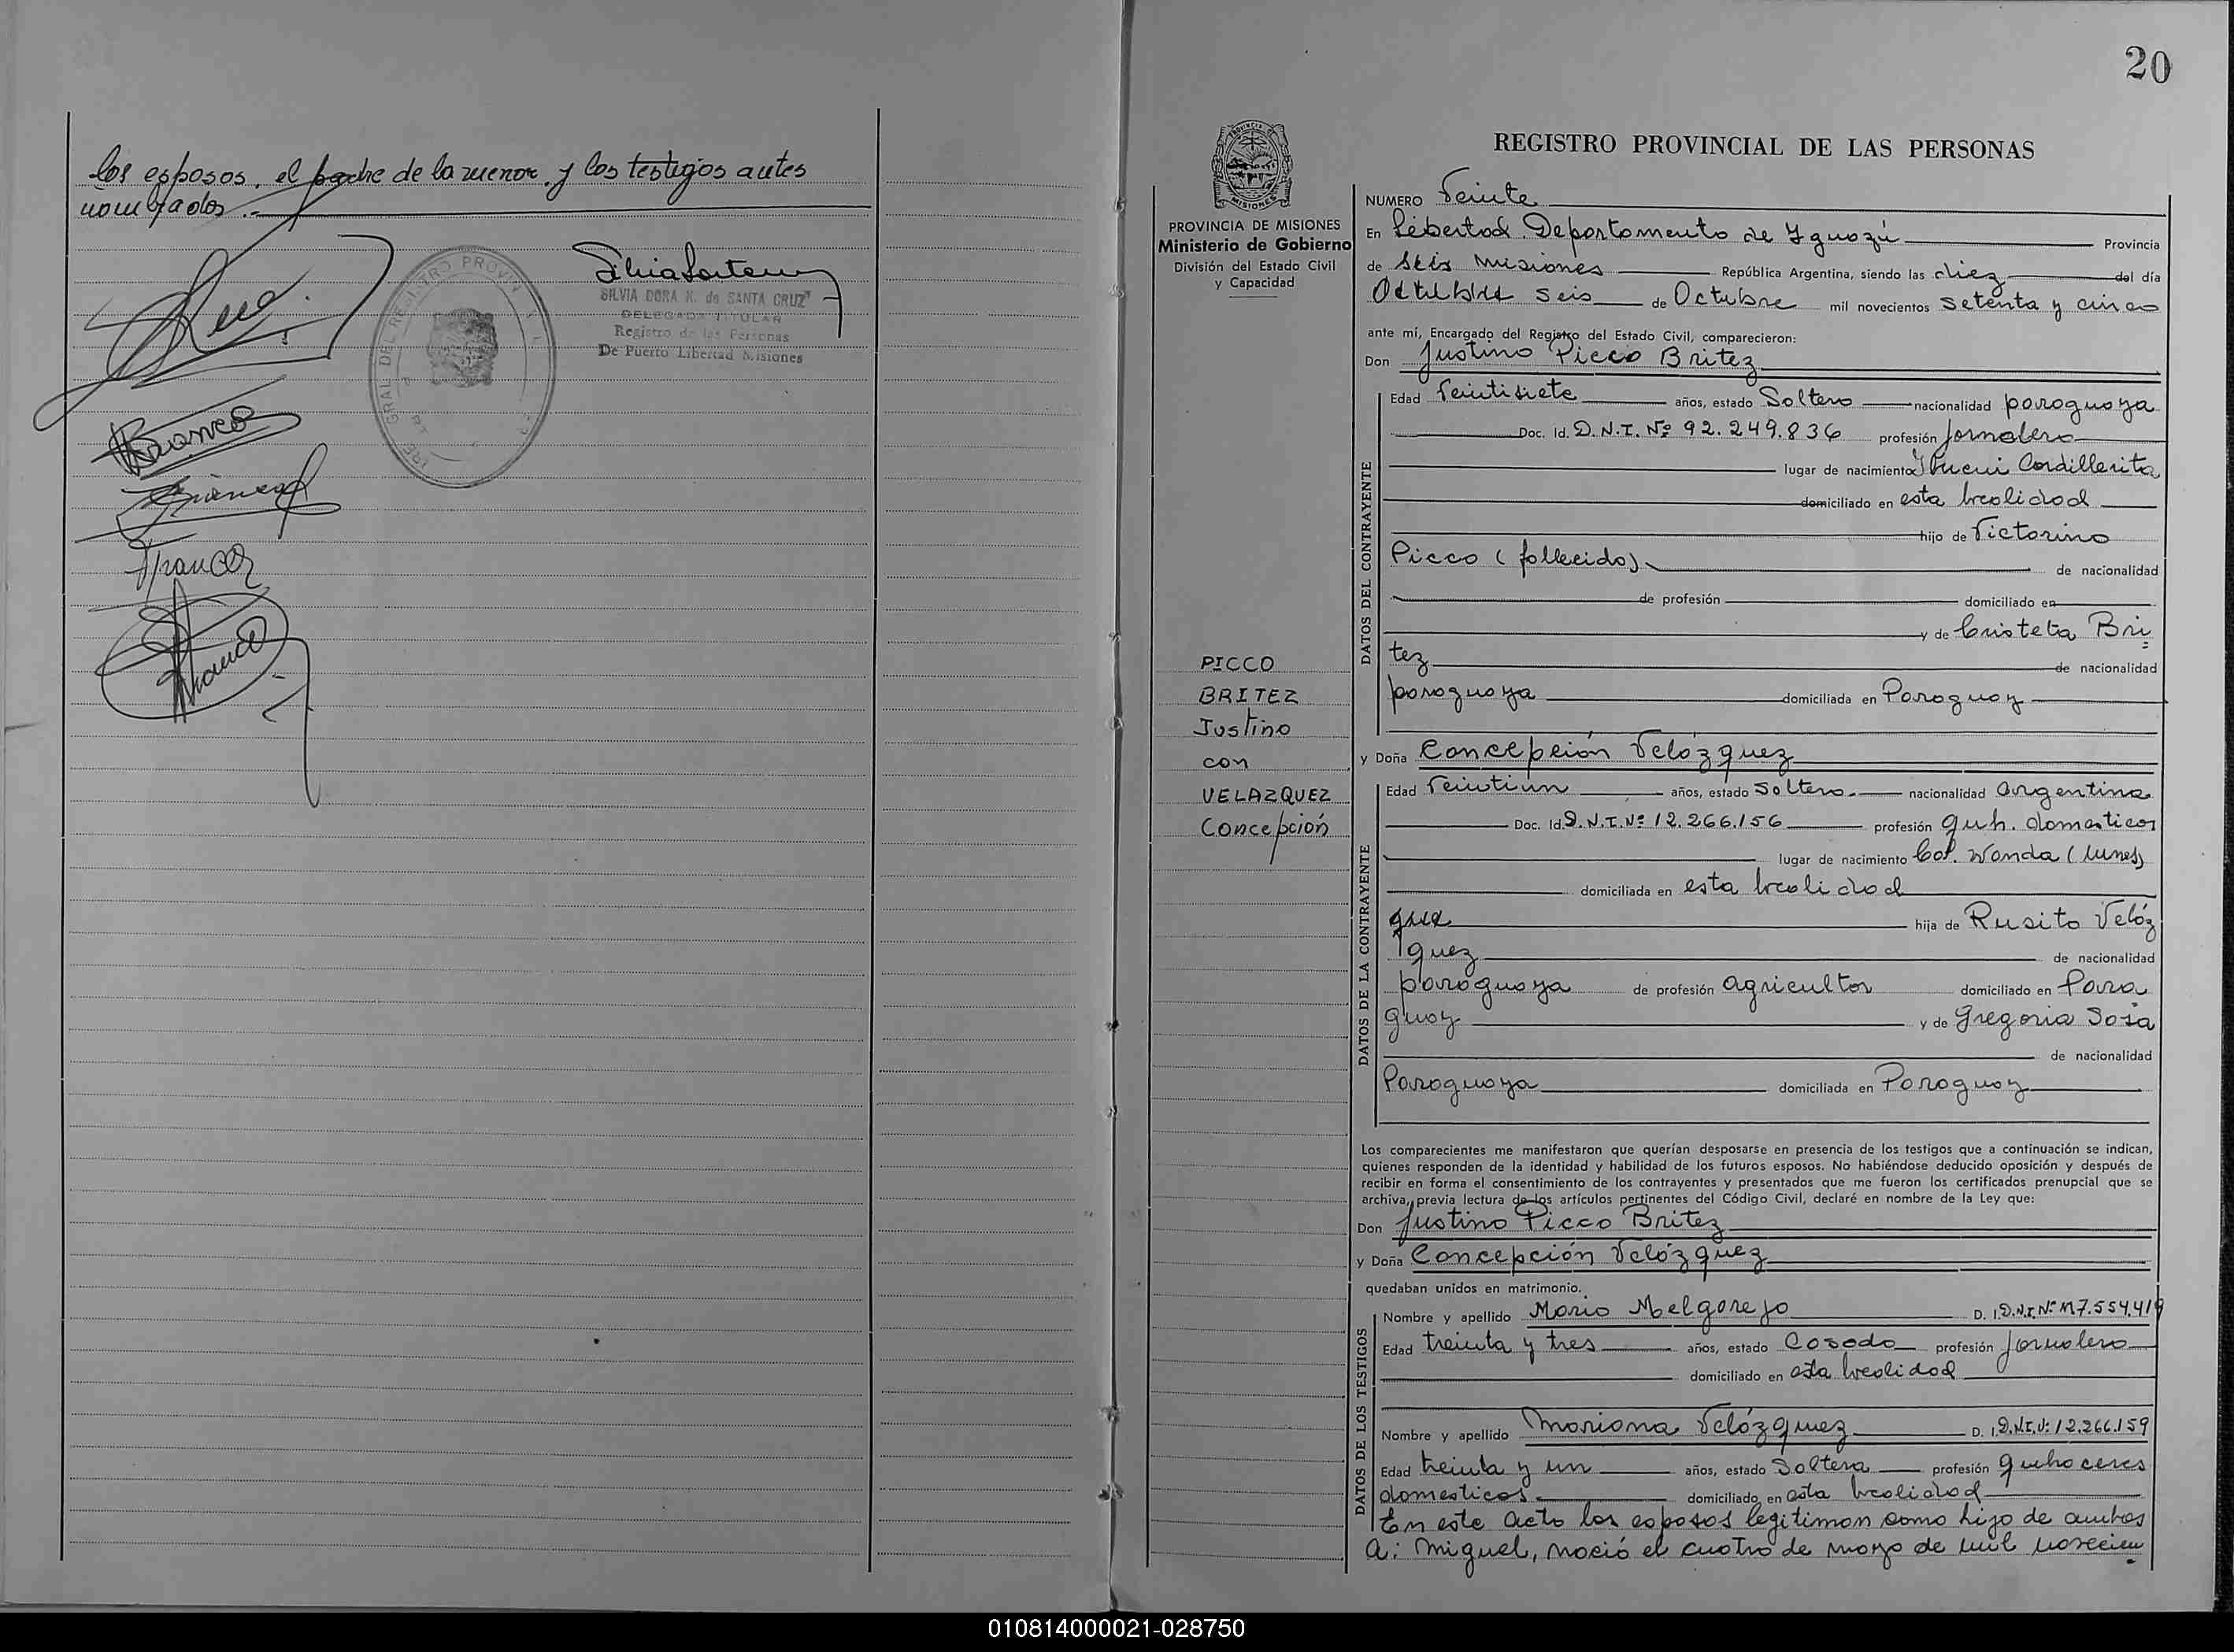 los esposos, el padre de la menor y los testigos antes
nombrados.-
Franco
SILVIA DORA N. de SANTA CRUZ
DELEGADA TITULAR
Registro de las Personas
De Puerto Libertad Misiones
20
REGISTRO PROVINCIAL DE LAS PERSONAS
PROVINCIA DE MISIONES
Ministerio de Gobierno
División del Estado Civil
y Capacidad
PICCO
BRITEZ
Justino
con
VELAZQUEZ
Concepción
NUMERO Veinte
En Libertad Departamento de Yguazú Provincia
de Seis Misiones República Argentina, siendo las diez del día
Octubre seis de Octubre mil novecientos setenta y cinco
ante mí, Encargado del Registro del Estado Civil, comparecieron:
Don Justino Picco Britez
DATOS DEL CONTRAYENTE
Edad Veintisiete años, estado Soltero nacionalidad paraguaya
Doc. Id. D.N.I. Nº 92.249.836 profesión Jornalero
lugar de nacimiento Cordillerita
domiciliado en esta localidad
hijo de Victorino
Picco (fallecido) de nacionalidad
de profesión domiciliado en
y de Cristeta Bri
tez de nacionalidad
paraguaya domiciliada en Paraguay
y Doña Concepción Velázquez
DATOS DE LA CONTRAYENTE
Edad Veintiun años, estado Soltera nacionalidad argentina
Doc. Id. D.N.I. Nº 12.266.156 profesión queh. domesticos
lugar de nacimiento Col. Wanda (Mnes)
domiciliada en esta localidad
que hija de Rusito Veláz
quez de nacionalidad
paraguaya de profesión agricultor domiciliado en Para
guay y de Gregoria Sosa
de nacionalidad
Paraguaya domiciliada en Paraguay
Los comparecientes me manifestaron que querían desposarse en presencia de los testigos que a continuación se indican,
quienes responden de la identidad y habilidad de los futuros esposos. No habiéndose deducido oposición y después de
recibir en forma el consentimiento de los contrayentes y presentados que me fueron los certificados prenupcial que se
archiva, previa lectura de los artículos pertinentes del Código Civil, declaré en nombre de la Ley que:
Don Justino Picco Britez
y Doña Concepción Velázquez
quedaban unidos en matrimonio.
DATOS DE LOS TESTIGOS
Nombre y apellido Mario Melgarejo D. I. D.N.I. Nº M7.554.419
Edad treinta y tres años, estado Casado profesión Jornalero
domiciliado en esta localidad
Nombre y apellido Mariana Velázquez D. I. D.N.I. Nº 12.266.159
Edad treinta y un años, estado Soltera profesión quehaceres
domesticos domiciliado en esta localidad
En este acto los esposos legitiman como hijo de ambos
a: Miguel, nació el cuatro de marzo de mil novecien
010814000021-028750